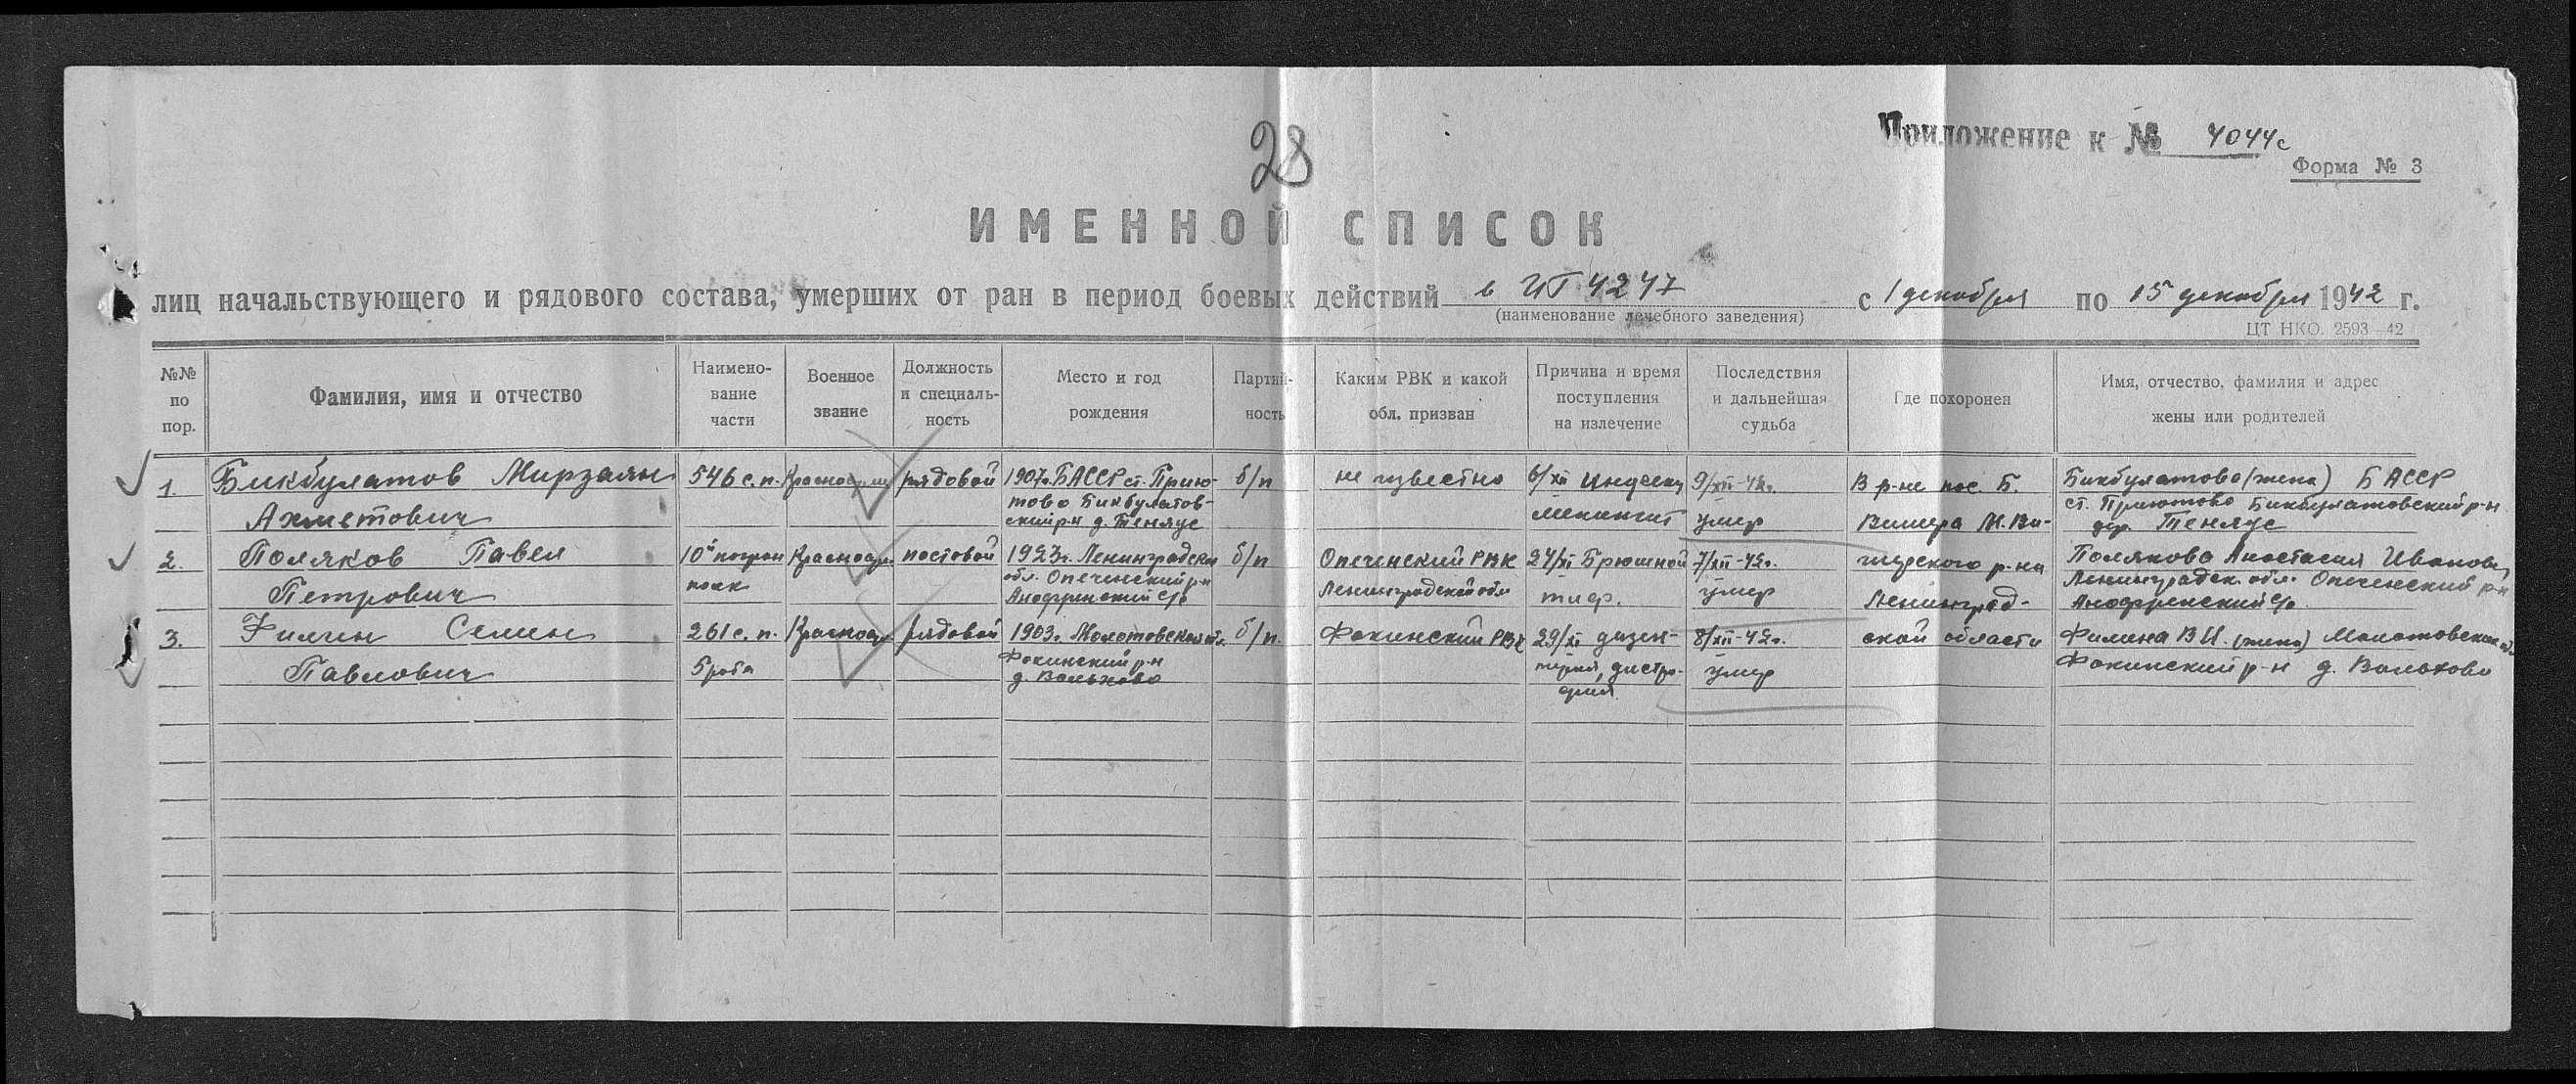 28
Приложение к № 4044с
Форма № 3
ИМЕННОЙ СПИСОК
лиц начальствующего и рядового состава, умерших от ран в период боевых действий в ИГ 4247 с 1 декабря по 15 декабря 1942 г.
(наименование лечебного заведения)
ЦТ НКО. 2593—42
№№ по пор.
Фамилия, имя и отчество
Наимено-
вание
части
Военное
звание
Должность
и специаль-
ность
Место и год
рождения
Партий-
ность
Каким РВК и какой
обл. призван
Причина и время
поступления
на излечение
Последствия
и дальнейшая
судьба
Где похоронен
Имя, отчество, фамилия и адрес
жены или родителей
1.
Бикбулатов Мирзаян
Ахметович
546 с.п.
рядовой
1907г. БАССР ст. Прию-
тово Бикбулатов-
ский р-н д. Теняус
б/п
не известно
6/XII
менингит
9/XII-42г.
умер
В р-не пос. Б.
Вишера М.Ви-
шерского р-на
Ленинград-
ской области
Бикбулатова (жена) БАССР
ст. Приютово Бикбулатовский р-н
дер. Теняус
2.
Поляков Павел
Петрович
10й погран
полк
Красноар.
постовой
1923г. Ленинградская
обл. Опеченский р-н
б/п
Опеченский РВК
Ленинградской обл
24/XI Брюшной
тиф.
7/XII-42г.
умер
Полякова Анастасия Ивановна
Ленинградск. обл. Опеченский р-н
3.
Филин Семен
Павлович
261 с.п.
5 рота
Красноар
рядовой
1903г. Молотовская обл.
Фокинский р-н
д. Вольхово
б/п.
Фокинский РВК
29/XI дизен-
терия, дистро-
фия
8/XII-42г.
умер
Филина В.И. (жена) Молотовская обл
Фокинский р-н д. Вольхово